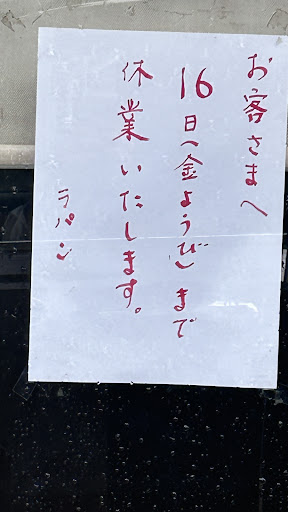 お客さまへ
16日(金ようび)まで
休業いたします。
ラパン